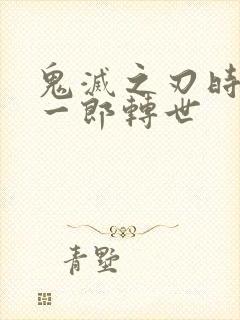 鬼滅之刃時
一郎轉世
青墅